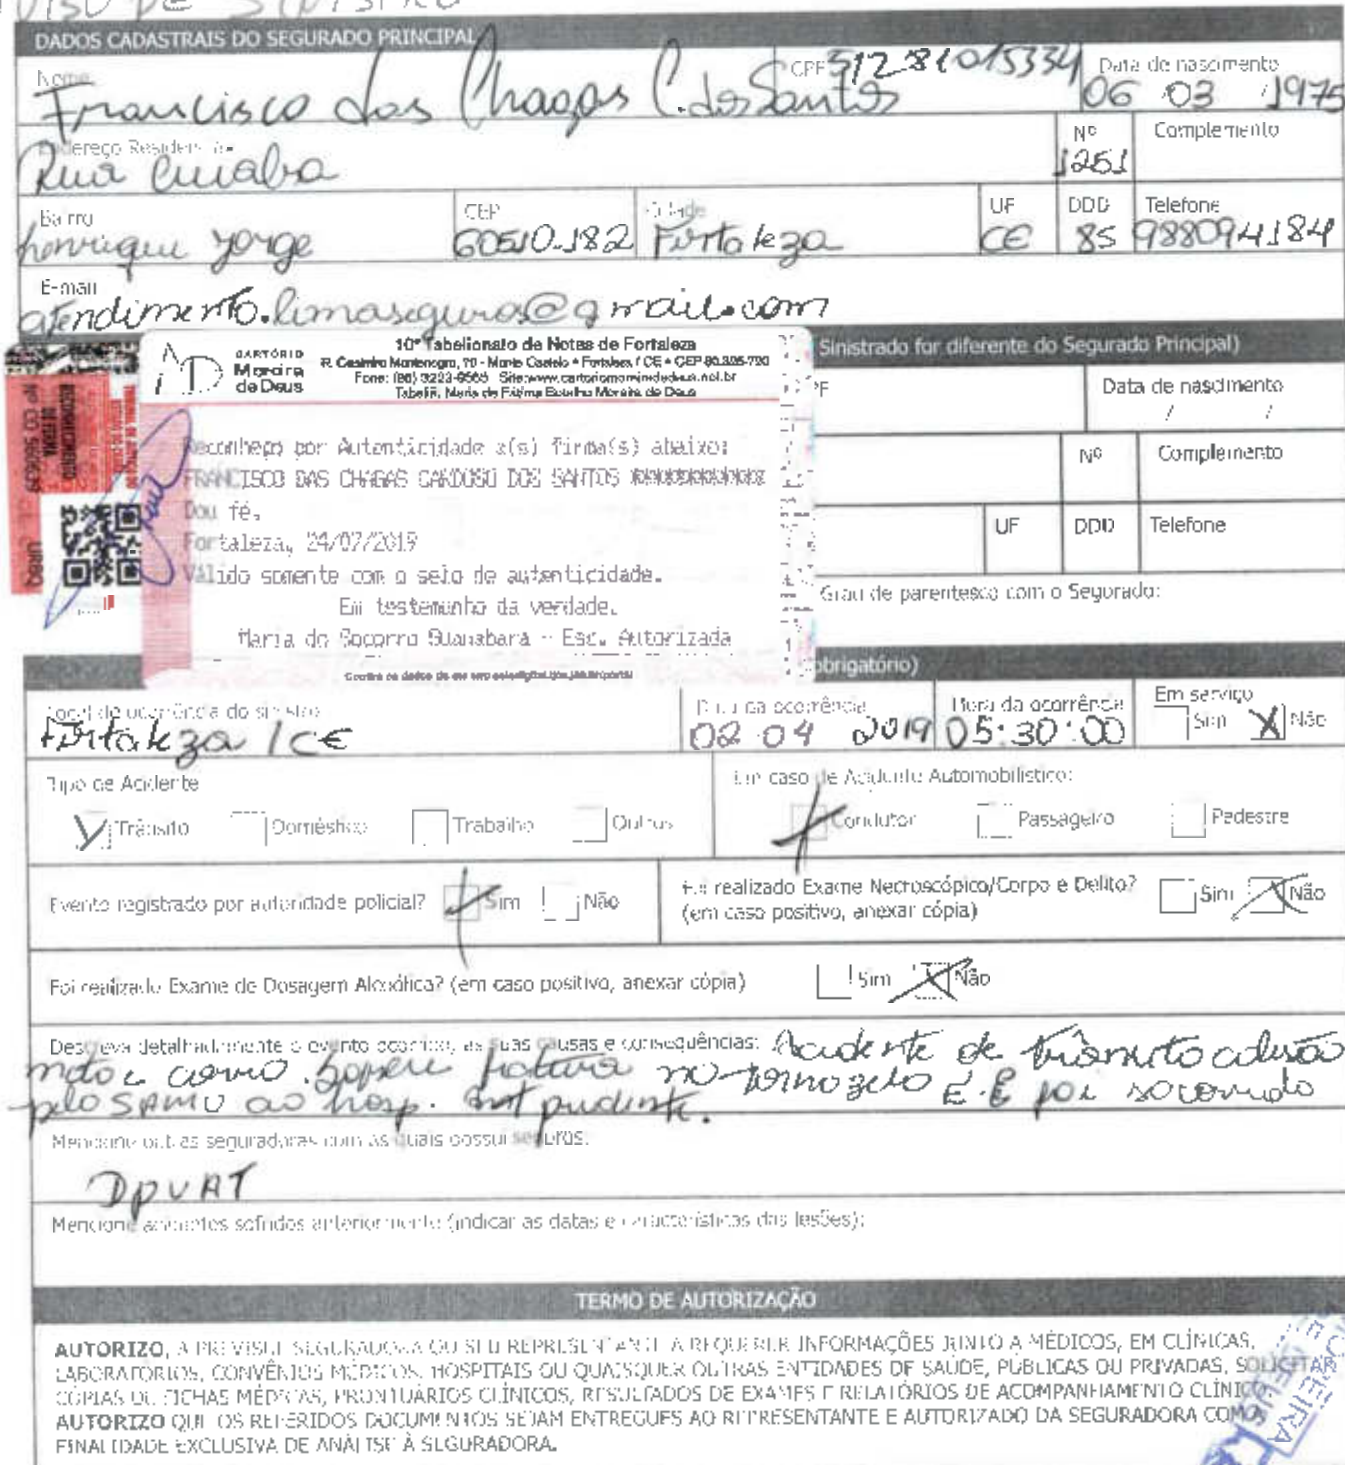 AVISO DE SINISTRO
DADOS CADASTRAIS DO SEGURADO PRINCIPAL
Nome
Francisco das Chagas C. dos Santos
CPF 51281015334
Data de nascimento
06 03 1975
Endereço Residencial
Rua Cuiaba
Nº
1251
Complemento
Bairro
henrique jorge
CEP
60510.182
Cidade
Fortaleza
UF
CE
DDD
85
Telefone
988094184
E-mail
atendimento.limaseguros@gmail.com
CARTÓRIO
Moreira
de Deus
10º Tabelionato de Notas de Fortaleza
Reconheço por Autenticidade a(s) firma(s) abaixo:
FRANCISCO DAS CHAGAS CARDOSO DOS SANTOS
Dou fé.
Fortaleza, 24/07/2019
Válido somente com o selo de autenticidade.
Em testemunho da verdade.
Maria do Socorro Guanabara - Esc. Autorizada
Sinistrado for diferente do Segurado Principal)
Data de nascimento
/ /
Nº
Complemento
UF
DDD
Telefone
Grau de parentesco com o Segurado:
obrigatório)
Local de ocorrência do sinistro
Fortaleza / CE
Data da ocorrência
02 04 2019
Hora da ocorrência
05:30:00
Em serviço
Sim X Não
Tipo de Acidente
Trânsito Doméstico Trabalho Outros
Em caso de Acidente Automobilístico:
Condutor Passageiro Pedestre
Evento registrado por autoridade policial? Sim Não
Foi realizado Exame Necroscópico/Corpo e Delito?
(em caso positivo, anexar cópia)
Sim Não
Foi realizado Exame de Dosagem Alcoólica? (em caso positivo, anexar cópia) Sim Não
Descreva detalhadamente o evento ocorrido, as suas causas e consequências: Acidente de trânsito colisão
moto e carro. Sofreu fratura no tornozelo E. E foi socorrido
pelo SAMU ao hosp.
Mencione outras seguradoras com as quais possui seguros:
DPVAT
Mencione acidentes sofridos anteriormente (indicar as datas e características das lesões):
TERMO DE AUTORIZAÇÃO
AUTORIZO, A PREVISUL SEGURADORA OU SEU REPRESENTANTE A REQUERER INFORMAÇÕES JUNTO A MÉDICOS, EM CLÍNICAS,
LABORATÓRIOS, CONVÊNIOS MÉDICOS, HOSPITAIS OU QUAISQUER OUTRAS ENTIDADES DE SAÚDE, PÚBLICAS OU PRIVADAS, SOLICITAR
CÓPIAS DE FICHAS MÉDICAS, PRONTUÁRIOS CLÍNICOS, RESULTADOS DE EXAMES E RELATÓRIOS DE ACOMPANHAMENTO CLÍNICO.
AUTORIZO QUE OS REFERIDOS DOCUMENTOS SEJAM ENTREGUES AO REPRESENTANTE E AUTORIZADO DA SEGURADORA COM A
FINALIDADE EXCLUSIVA DE ANÁLISE À SEGURADORA.